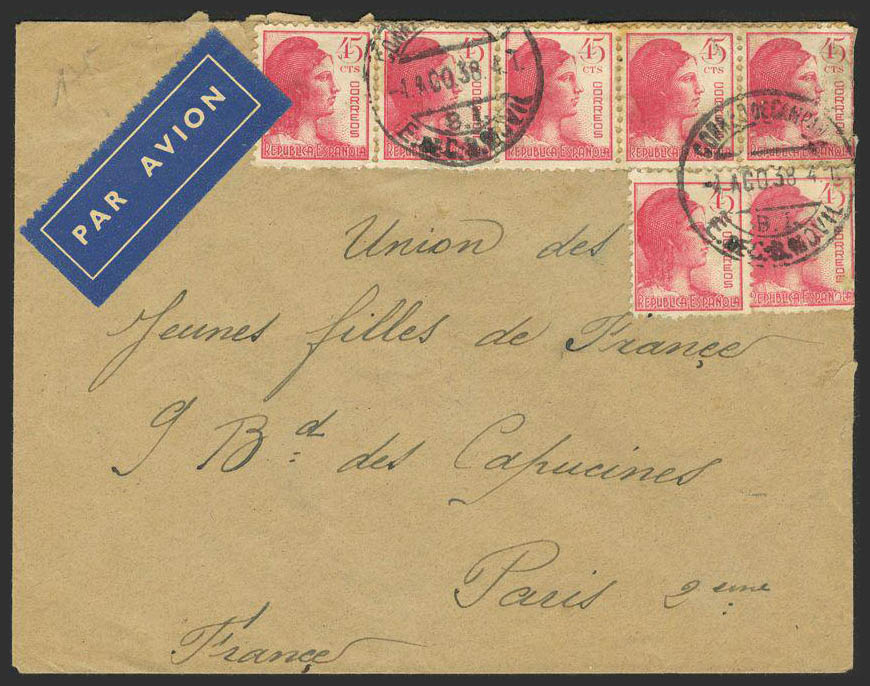 PAR AVION
45 CTS CORREOS REPUBLICA ESPAÑOLA
45 CTS CORREOS REPUBLICA ESPAÑOLA
45 CTS CORREOS REPUBLICA ESPAÑOLA
45 CTS CORREOS REPUBLICA ESPAÑOLA
45 CTS CORREOS REPUBLICA ESPAÑOLA
-1.AGO.38 4.T.
B.I.
45 CORREOS REPUBLICA ESPAÑOLA
45 CORREOS REPUBLICA ESPAÑOLA
CORREO DE CAMPAÑA
-1.AGO.38 4.T.
B.I.
Union des
Jeunes filles de Françe
9 Bd des Capucines
Paris 2eme
Françe